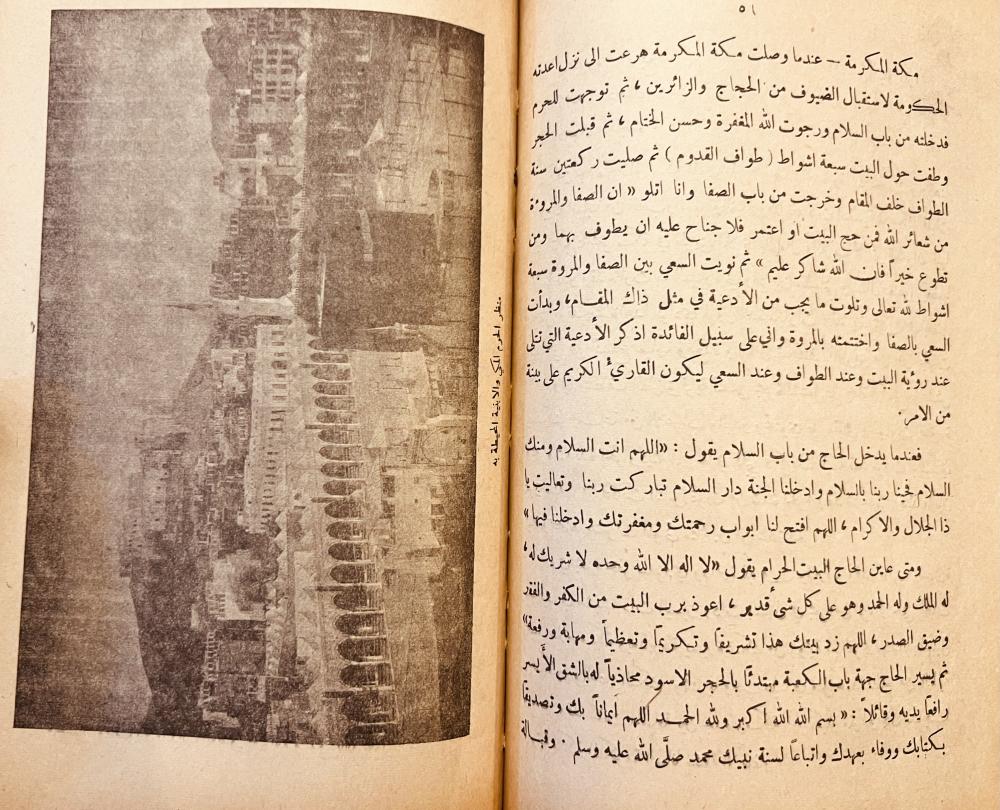 ٥١
مكة المكرمة — عندما وصلت مكة المكرمة هرعت الى نزل اعدته
الحكومة لاستقبال الضيوف من الحجاج والزائرين ، ثم توجهت للحرم
فدخلته من باب السلام ورجوت الله المغفرة وحسن الختام ، ثم قبلت الحجر
وطفت حول البيت سبعة اشواط ( طواف القدوم ) ثم صليت ركعتين سنة
الطواف خلف المقام وخرجت من باب الصفا وانا اتلو « ان الصفا والمروءة
من شعائر الله فمن حج البيت او اعتمر فلا جناح عليه ان يطوف بهما ومن
تطوع خيراً فان الله شاكر عليم » ثم نويت السعي بين الصفا والمروة سبعة
اشواط لله تعالى وتلوت ما يجب من الأدعية في مثل ذاك المقام، وبدأت
السعي بالصفا واختتمته بالمروة واني على سبيل الفائدة اذكر الأدعية التي تتلى
عند روءية البيت وعند الطواف وعند السعي ليكون القاريء الكريم على بينة
من الامر .
فعندما يدخل الحاج من باب السلام يقول : «اللهم انت السلام ومنك
السلام فحينا ربنا بالسلام وادخلنا الجنة دار السلام تباركت ربنا وتعاليت يا
ذا الجلال والاكرام ، اللهم افتح لنا ابواب رحمتك ومغفرتك وادخلنا فيها »
ومتى عاين الحاج البيت الحرام يقول «لا اله الا الله وحده لا شريك له ،
له الملك وله الحمد وهو على كل شئ قدير ، اعوذ برب البيت من الكفر والفقر
وضيق الصدر ، اللهم زد بيتك هذا تشريفاً وتكريماً وتعظيماً ومهابة ورفعة»
ثم يسير الحاج جهة باب الكعبة مبتدئاً بالحجر الاسود محاذياً له بالشق الأيسر
رافعاً يديه وقائلاً : « بسم الله الله اكبر ولله الحمد اللهم ايماناً بك وتصديقاً
بكتابك ووفاء بعهدك واتباعاً لسنة نبيك محمد صلَّى الله عليه وسلم . وقبالة
منظر الحرم المكي والابنية المحيطة به